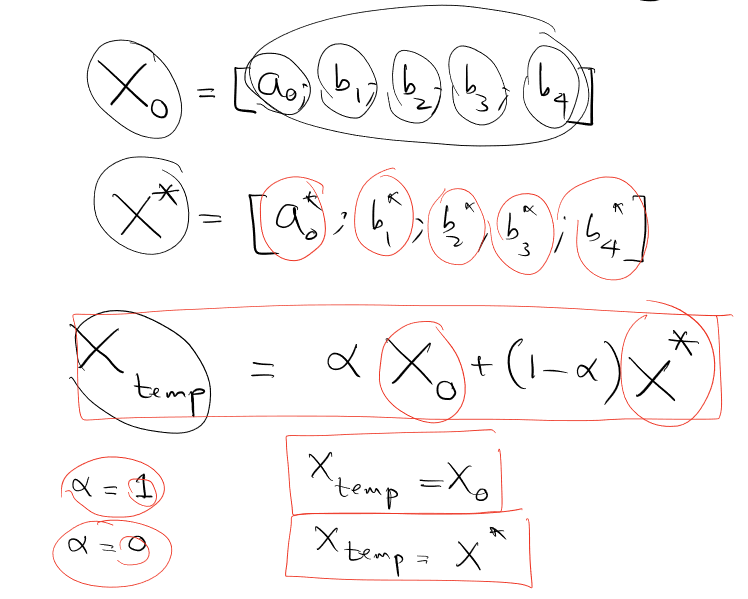 X₀ = [a₀; b₁; b₂; b₃; b₄]
X* = [a₀*; b₁*; b₂*; b₃*; b₄*]
X temp = α X₀ + (1-α) X*
α = 1 X temp = X₀
α = 0 X temp = X*